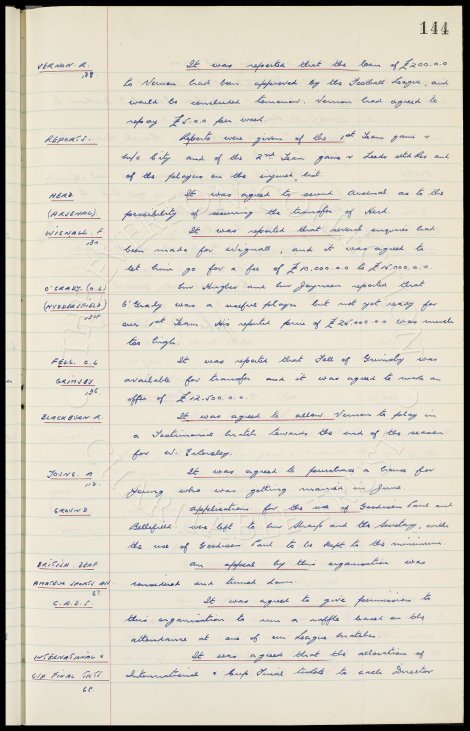 144
VERNON. R. It was reported that the loan of £200.0.0
138 to Vernon had been approved by the Football League, and
would be concluded tomorrow. Vernon had agreed to
repay £5.0.0 per week.
REPORTS. Reports were given of the 1st Team game v
City and of the 2nd Team game v Leeds Utd Res and
of the players on the injured list.
HERD It was agreed to sound Arsenal as to the
(ARSENAL). possibility of securing the transfer of Herd.
WIGNALL. F It was reported that several enquiries had
130 been made for Wignall, and it was agreed to
let him go for a fee of £10,000.0.0 to £15,000.0.0.
O'GRADY. (O.L) Mr Hughes and Mr Jaynson reported that
(HUDDERSFIELD) O'Grady was a useful player but not yet ready for
134 our 1st Team. His reputed price of £25,000.0.0 was much
too high.
FELL. O.L It was reported that Fell of Grimsby was
GRIMSBY available for transfer and it was agreed to make an
136 offer of £12,500.0.0.
BLACKBURN. R. It was agreed to allow Vernon to play in
a Testimonial Match towards the end of the season
for W. Eckersley.
YOUNG. A It was agreed to purchase a house for
112. Young who was getting married in June.
GROUND Applications for the use of Goodison Park and
Bellefield were left to Mr Sharp and the Secretary, with
the use of Goodison Park to be kept to the minimum.
BRITISH DEAF An appeal by this organisation was
AMATEUR SPORTS AN. considered and turned down.
67.
It was agreed to give permission to
this organisation to run a raffle based on the
attendance at one of our League matches.
INTERNATIONAL & It was agreed that the allocation of
CUP FINAL TKTS International & Cup Final tickets to each Director